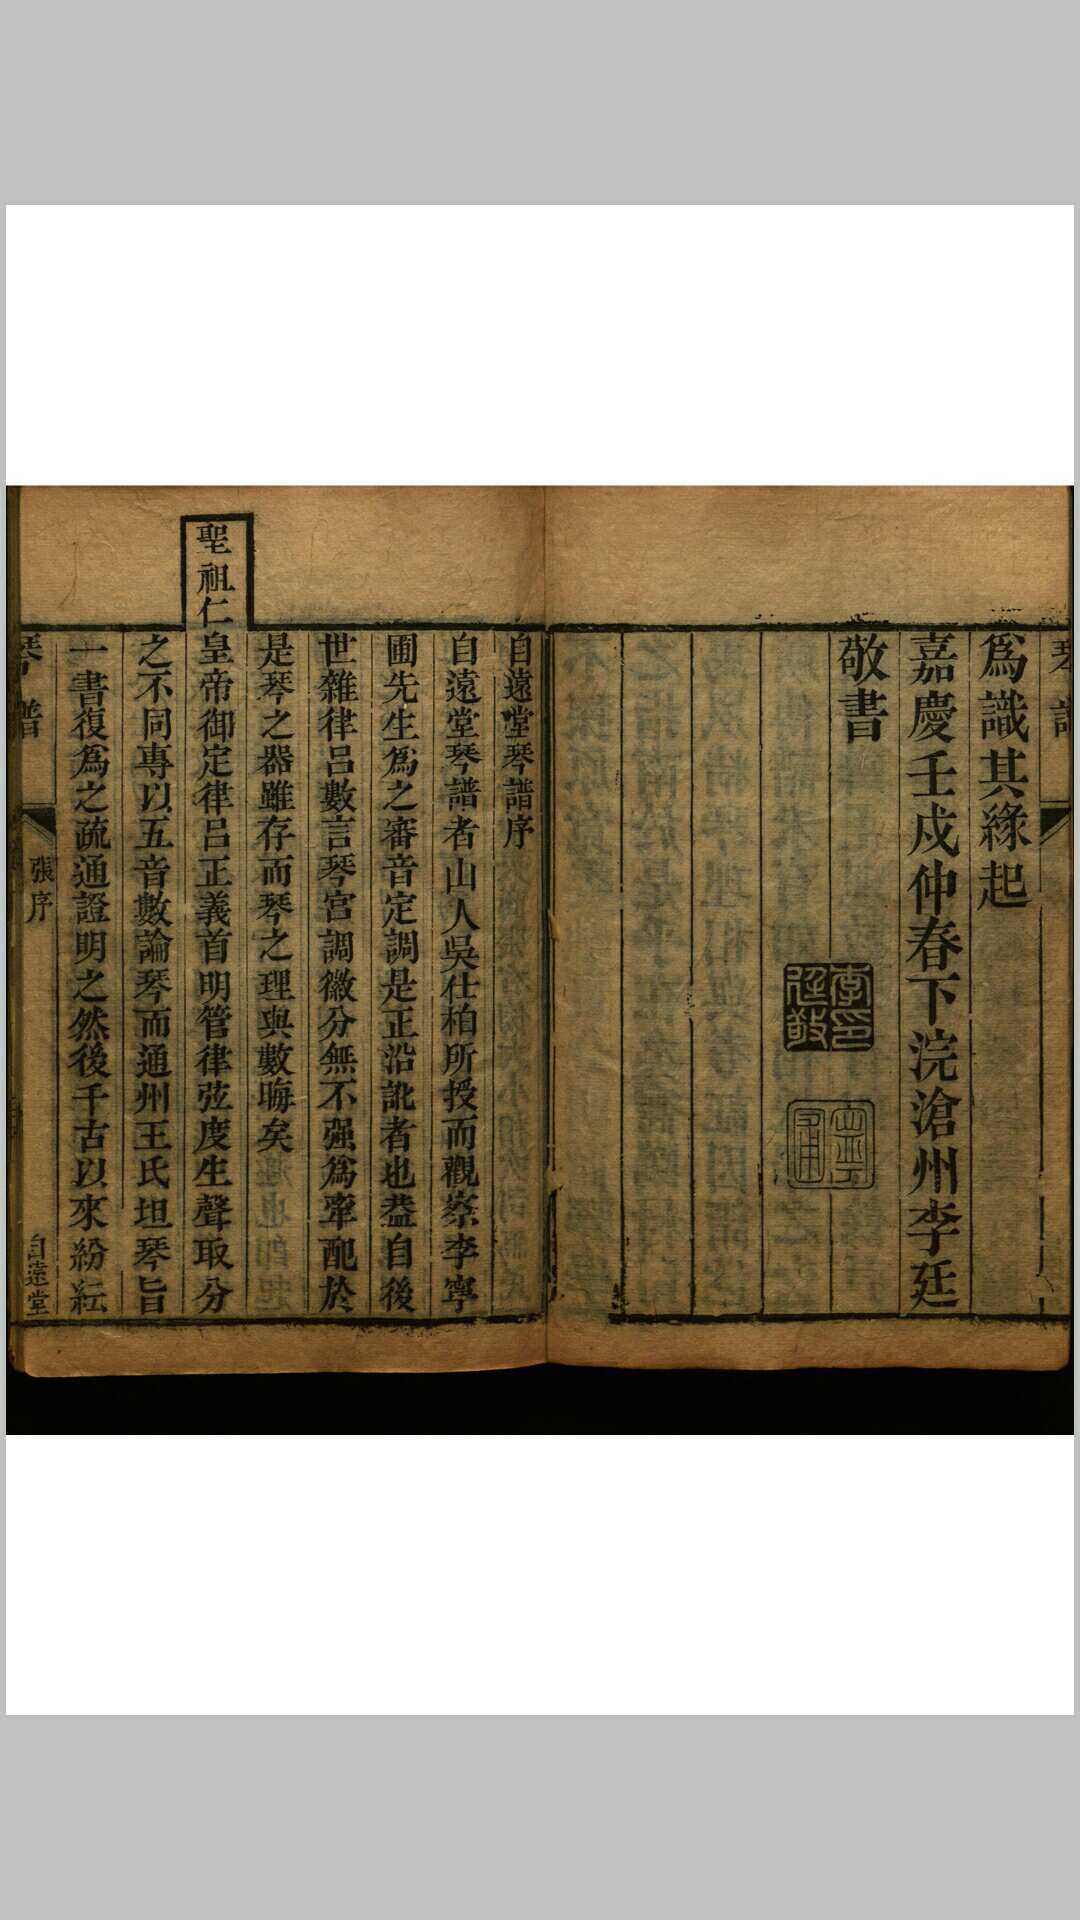 爲識其緣起
嘉慶壬戌仲春下浣滄州李廷
敬書
李印廷敬
寧圃
自遠堂琴譜序
自遠堂琴譜者山人吳仕柏所授而觀察李寧
圃先生爲之審音定調是正沿訛者也葢自後
世雜律呂數言琴宮調徽分無不强爲牽配於
是琴之器雖存而琴之理與數晦矣
聖祖仁皇帝御定律呂正義首明管律弦度生聲取分
之不同專以五音數論琴而通州王氏坦琴旨
一書復爲之疏通證明之然後千古以來紛紜
琴譜
張序
自遠堂